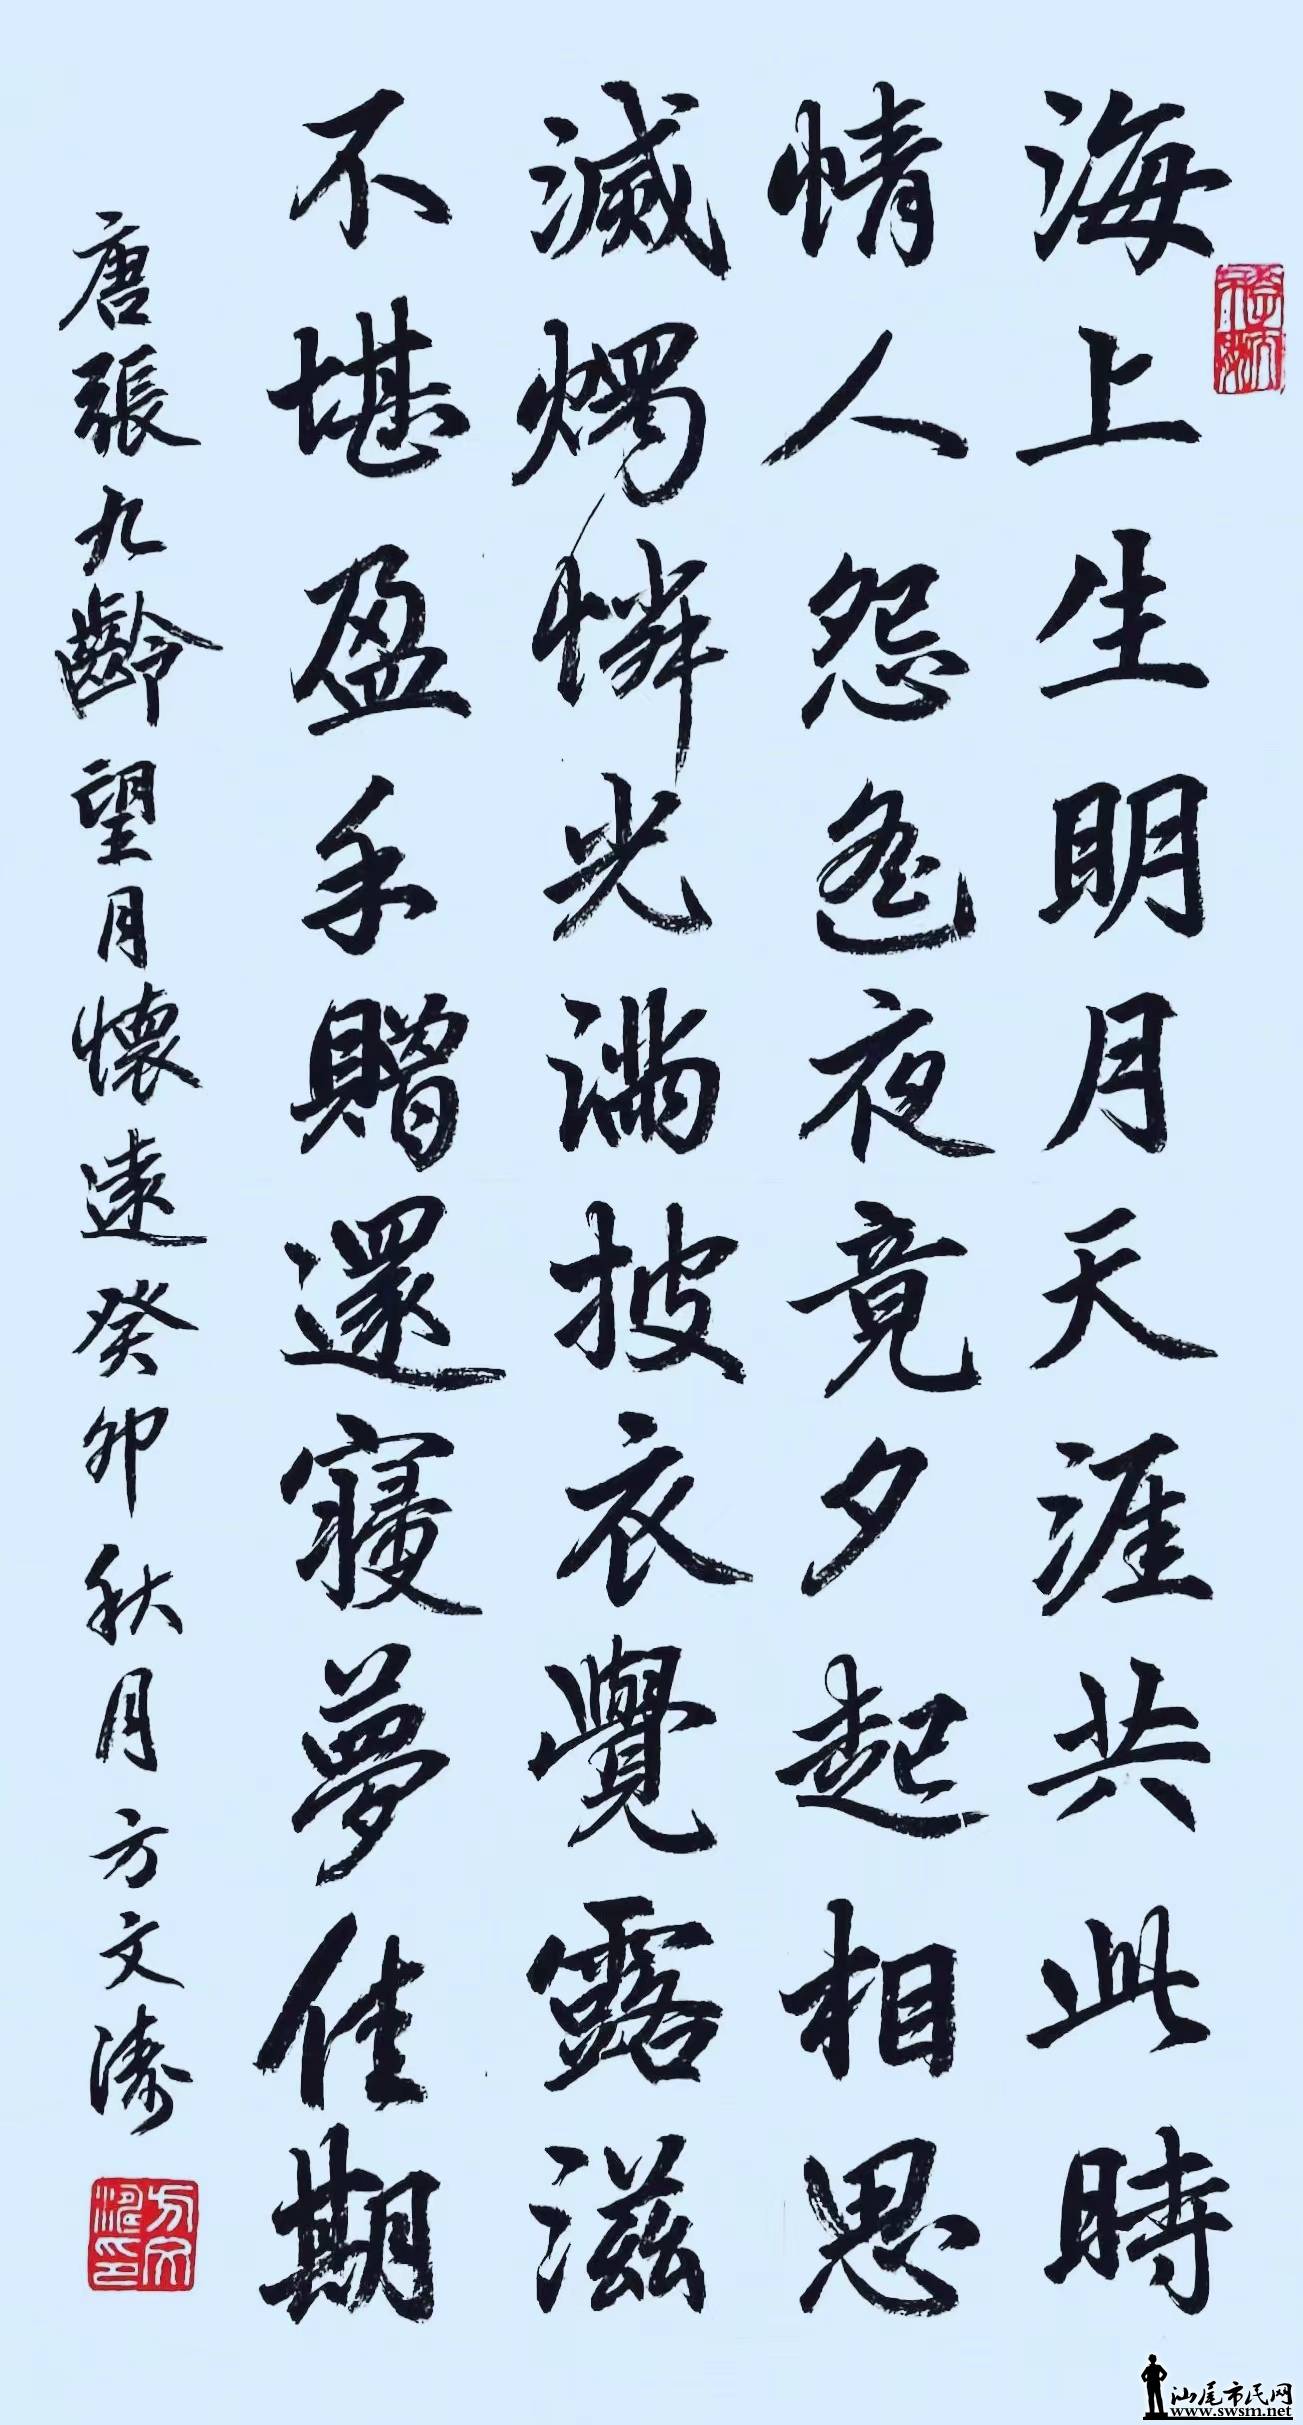 海上生明月天涯共此時
情人怨遙夜竟夕起相思
滅燭憐光滿披衣覺露滋
不堪盈手贈還寢夢佳期
唐張九齡望月懷遠癸卯秋月方文濤
方文濤印
汕尾市民网
www.swsm.net